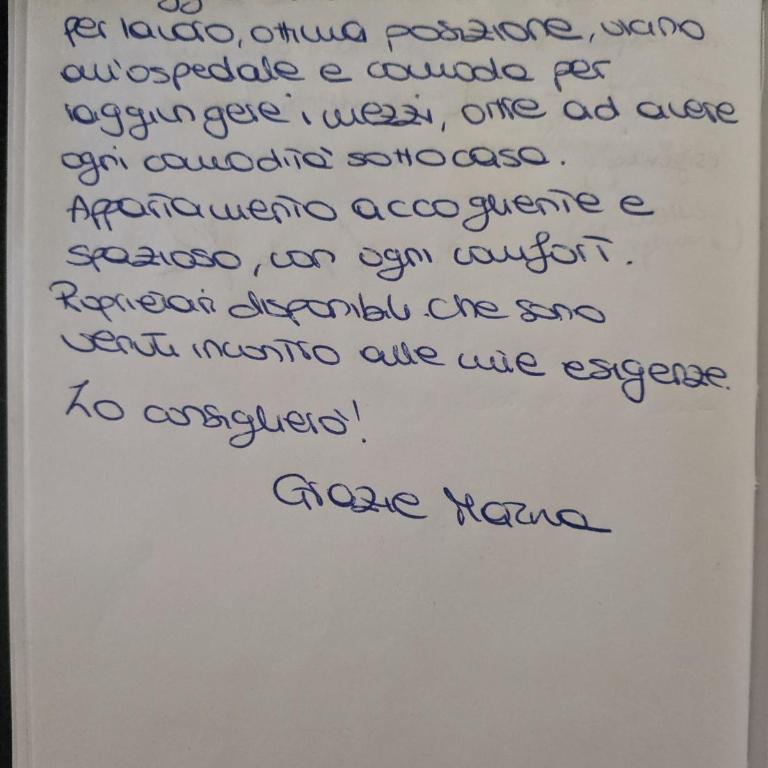 per lavoro, ottima posizione, vicino
all'ospedale e comoda per
raggiungere i mezzi, oltre ad avere
ogni comodità sotto casa.
Appartamento accogliente e
spazioso, con ogni comfort.
Proprietari disponibili che sono
venuti incontro alle mie esigenze.
Lo consiglierò!
Grazie